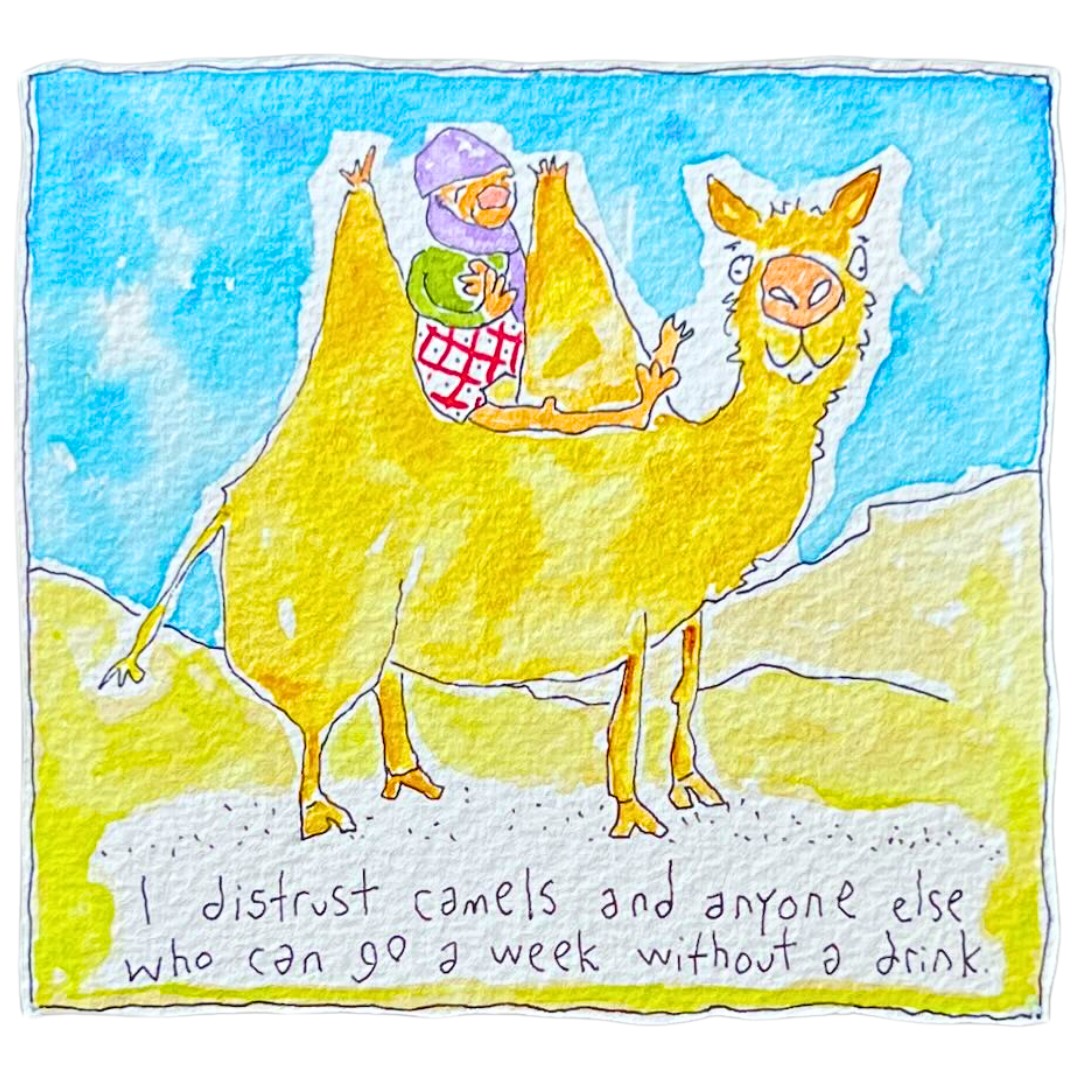 I distrust camels and anyone else
who can go a week without a drink.